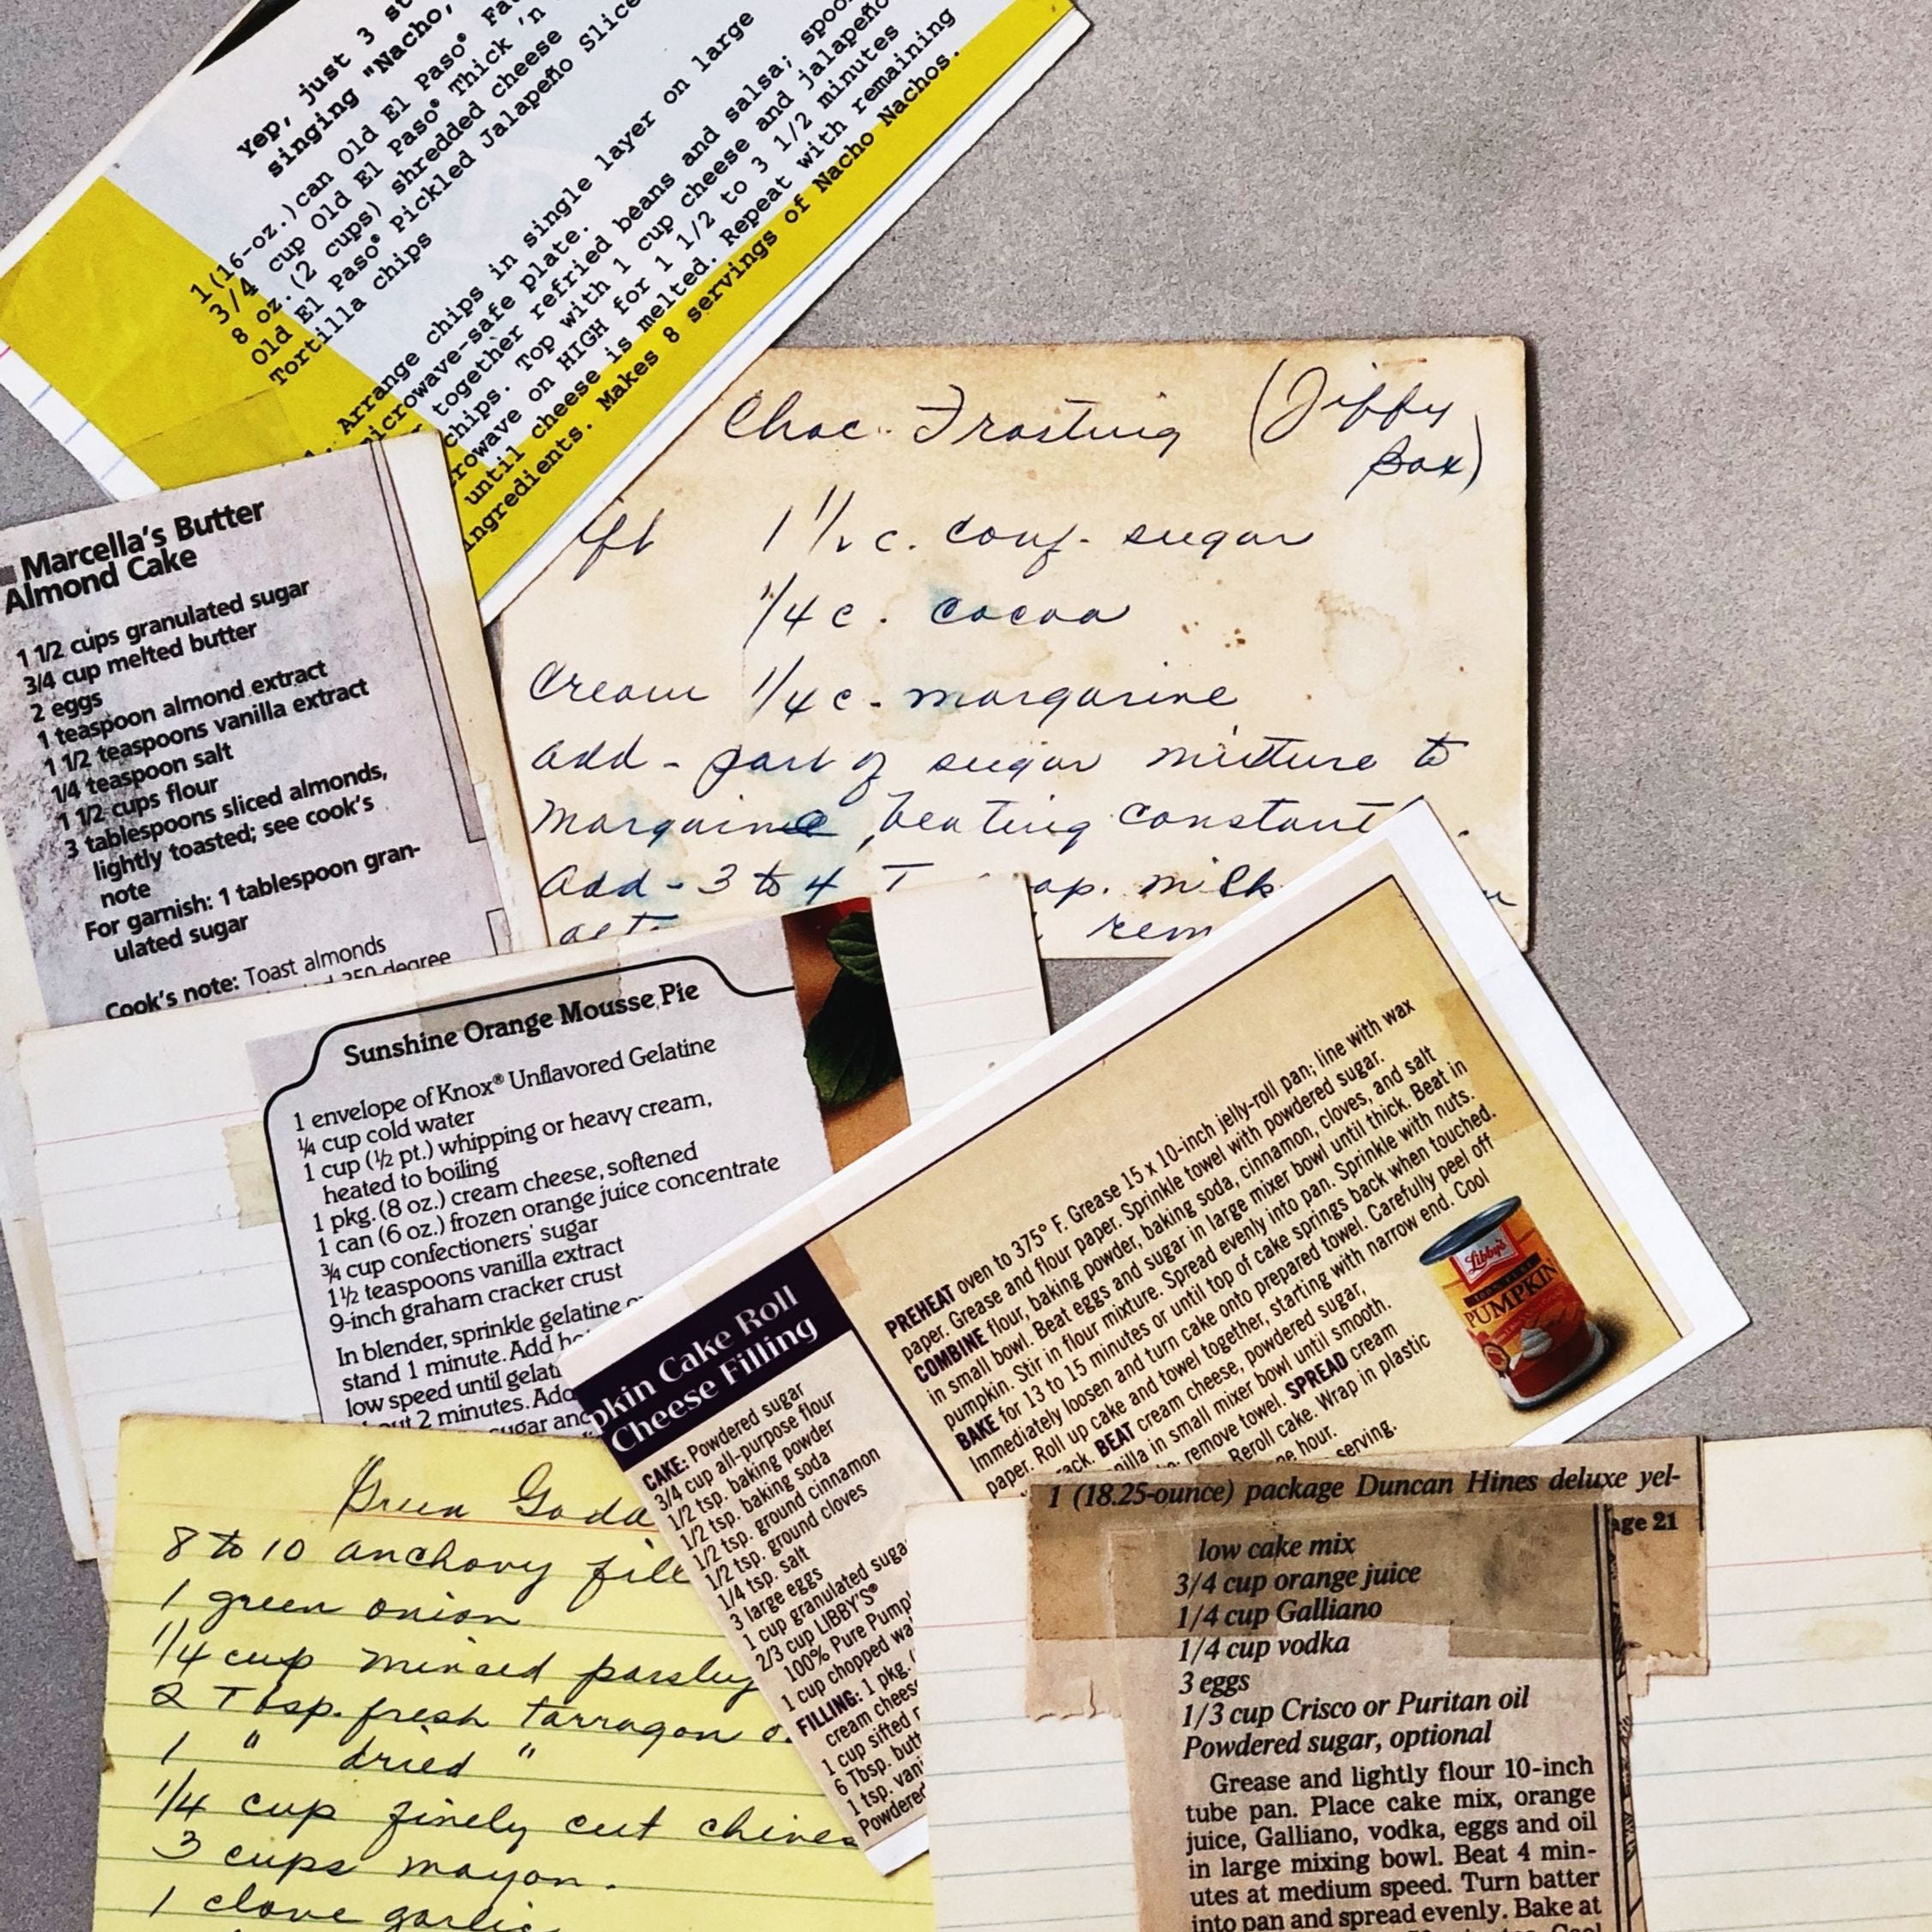 Yep, just 3 st
singing "Nacho,
1 (16-oz.) can Old El Paso®
3/4 cup Old El Paso® Thick 'n
8 oz. (2 cups) shredded cheese
Old El Paso® Pickled Jalapeño Slice
Tortilla chips
1. Arrange chips in single layer on large
microwave-safe plate.
together refried beans and salsa; spoo
chips. Top with 1 cup cheese and jalapeño
crowave on HIGH for 1 1/2 to 3 1/2 minutes
until cheese is melted. Repeat with remaining
ingredients. Makes 8 servings of Nacho Nachos.
Choc. Frosting (Jiffy
Box)
ift 1 1/2 c. conf. sugar
1/4 c. cocoa
Cream 1/4 c. margarine
add - part of sugar mixture to
margarine, beating constant
Add - 3 to 4 T ap. milk
rem
Marcella's Butter
Almond Cake
1 1/2 cups granulated sugar
3/4 cup melted butter
2 eggs
1 teaspoon almond extract
1 1/2 teaspoons vanilla extract
1/4 teaspoon salt
1 1/2 cups flour
3 tablespoons sliced almonds,
lightly toasted; see cook's
note
For garnish: 1 tablespoon gran-
ulated sugar
Cook's note: Toast almonds
350-degree
Sunshine Orange Mousse Pie
1 envelope of Knox® Unflavored Gelatine
¼ cup cold water
1 cup (½ pt.) whipping or heavy cream,
heated to boiling
1 pkg. (8 oz.) cream cheese, softened
1 can (6 oz.) frozen orange juice concentrate
¾ cup confectioners' sugar
1½ teaspoons vanilla extract
9-inch graham cracker crust
In blender, sprinkle gelatine o
stand 1 minute. Add ho
low speed until gelati
out 2 minutes. Add
sugar and
pkin Cake Roll
Cheese Filling
CAKE: Powdered sugar
3/4 cup all-purpose flour
1/2 tsp. baking powder
1/2 tsp. baking soda
1/2 tsp. ground cinnamon
1/2 tsp. ground cloves
1/4 tsp. salt
3 large eggs
1 cup granulated suga
2/3 cup LIBBY'S®
100% Pure Pump
1 cup chopped wa
FILLING: 1 pkg. (
cream cheese
1 cup sifted p
6 Tbsp. butt
1 tsp. vani
Powdered
PREHEAT oven to 375° F. Grease 15 x 10-inch jelly-roll pan; line with wax
paper. Grease and flour paper. Sprinkle towel with powdered sugar.
COMBINE flour, baking powder, baking soda, cinnamon, cloves, and salt
in small bowl. Beat eggs and sugar in large mixer bowl until thick. Beat in
pumpkin. Stir in flour mixture. Spread evenly into pan. Sprinkle with nuts.
BAKE for 13 to 15 minutes or until top of cake springs back when touched.
Immediately loosen and turn cake onto prepared towel. Carefully peel off
paper. Roll up cake and towel together, starting with narrow end. Cool
rack. BEAT cream cheese, powdered sugar,
nilla in small mixer bowl until smooth.
remove towel. SPREAD cream
Reroll cake. Wrap in plastic
ne hour.
serving.
Libby's
PUMPKIN
Green Godd
8 to 10 anchovy fille
1 green onion
1/4 cup minced parsley
2 Tbsp. fresh tarragon o
1 " dried "
1/4 cup finely cut chives
3 cups mayon.
1 clove garlic
1 (18.25-ounce) package Duncan Hines deluxe yel-
age 21
low cake mix
3/4 cup orange juice
1/4 cup Galliano
1/4 cup vodka
3 eggs
1/3 cup Crisco or Puritan oil
Powdered sugar, optional
Grease and lightly flour 10-inch
tube pan. Place cake mix, orange
juice, Galliano, vodka, eggs and oil
in large mixing bowl. Beat 4 min-
utes at medium speed. Turn batter
into pan and spread evenly. Bake at